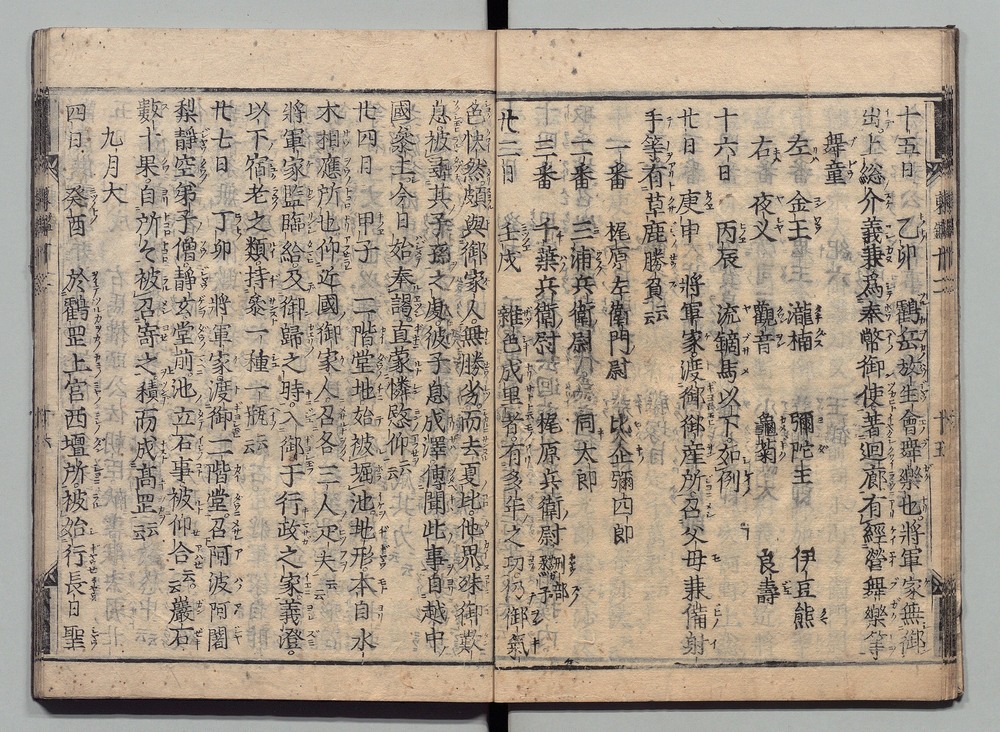 十五日 乙卯 鶴岳放生會舞樂也將軍家無御
出上総介義兼爲奉幣御使著廻廊有經營舞樂等
舞童
左 金王 瀧楠 彌陀王 伊豆熊
右 夜叉 觀音 龜菊 良壽
十六日 丙辰 流鏑馬以下如例
廿日 庚申 將軍家渡御御産所召父母兼備射
手等有草鹿勝負云云
一番 梶原左衛門尉 比企彌四郎
二番 三浦兵衛尉 同太郎
三番 千葉兵衛尉 梶原兵衛尉
廿二日 壬戌 雜色成里者有多年之功仍御氣
色快然頗與御家人無勝劣而去夏比他界殊御歎
息被尋其子孫之處彼子息成澤傳聞此事自越中
國參上今日始奉謁直蒙憐愍仰云云
廿四日 甲子 二階堂地始被堀池地形本自水
木相應所也仰近國御家人召各三人疋夫云云
將軍家監臨給及御歸之時入御于行政之家義澄
以下宿老之類持參一種一瓶云云
廿七日 丁卯 將軍家渡御二階堂召阿波阿闍
梨靜空弟子僧靜玄堂前池立石事被仰合云云巖石
數十果自所々被召寄之積而成高罡云云
九月大
四日 癸酉 於鶴罡上宮西壇所被始行長日聖